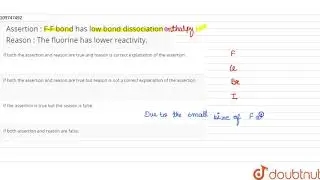 Assertion : F-F bond has low bond dissociation enthalpy
Reason : The fluorine has lower reactivity.
If both the assertion and reason are true and reason is correct explanation of the assertion.
F
Cl
If both the assertion and reason are true but reason is not a correct explanation of the assertion.
Br
I
If the assertion is true but the reason is false.
Due to the small size of F
If both assertion and reason are false.
doubtnut